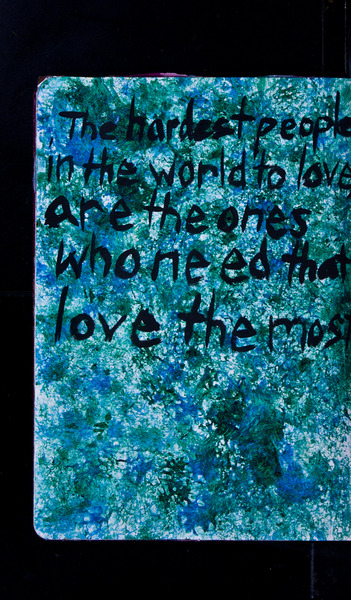 The hardest people
in the world to love,
are the ones
who need that
love the most